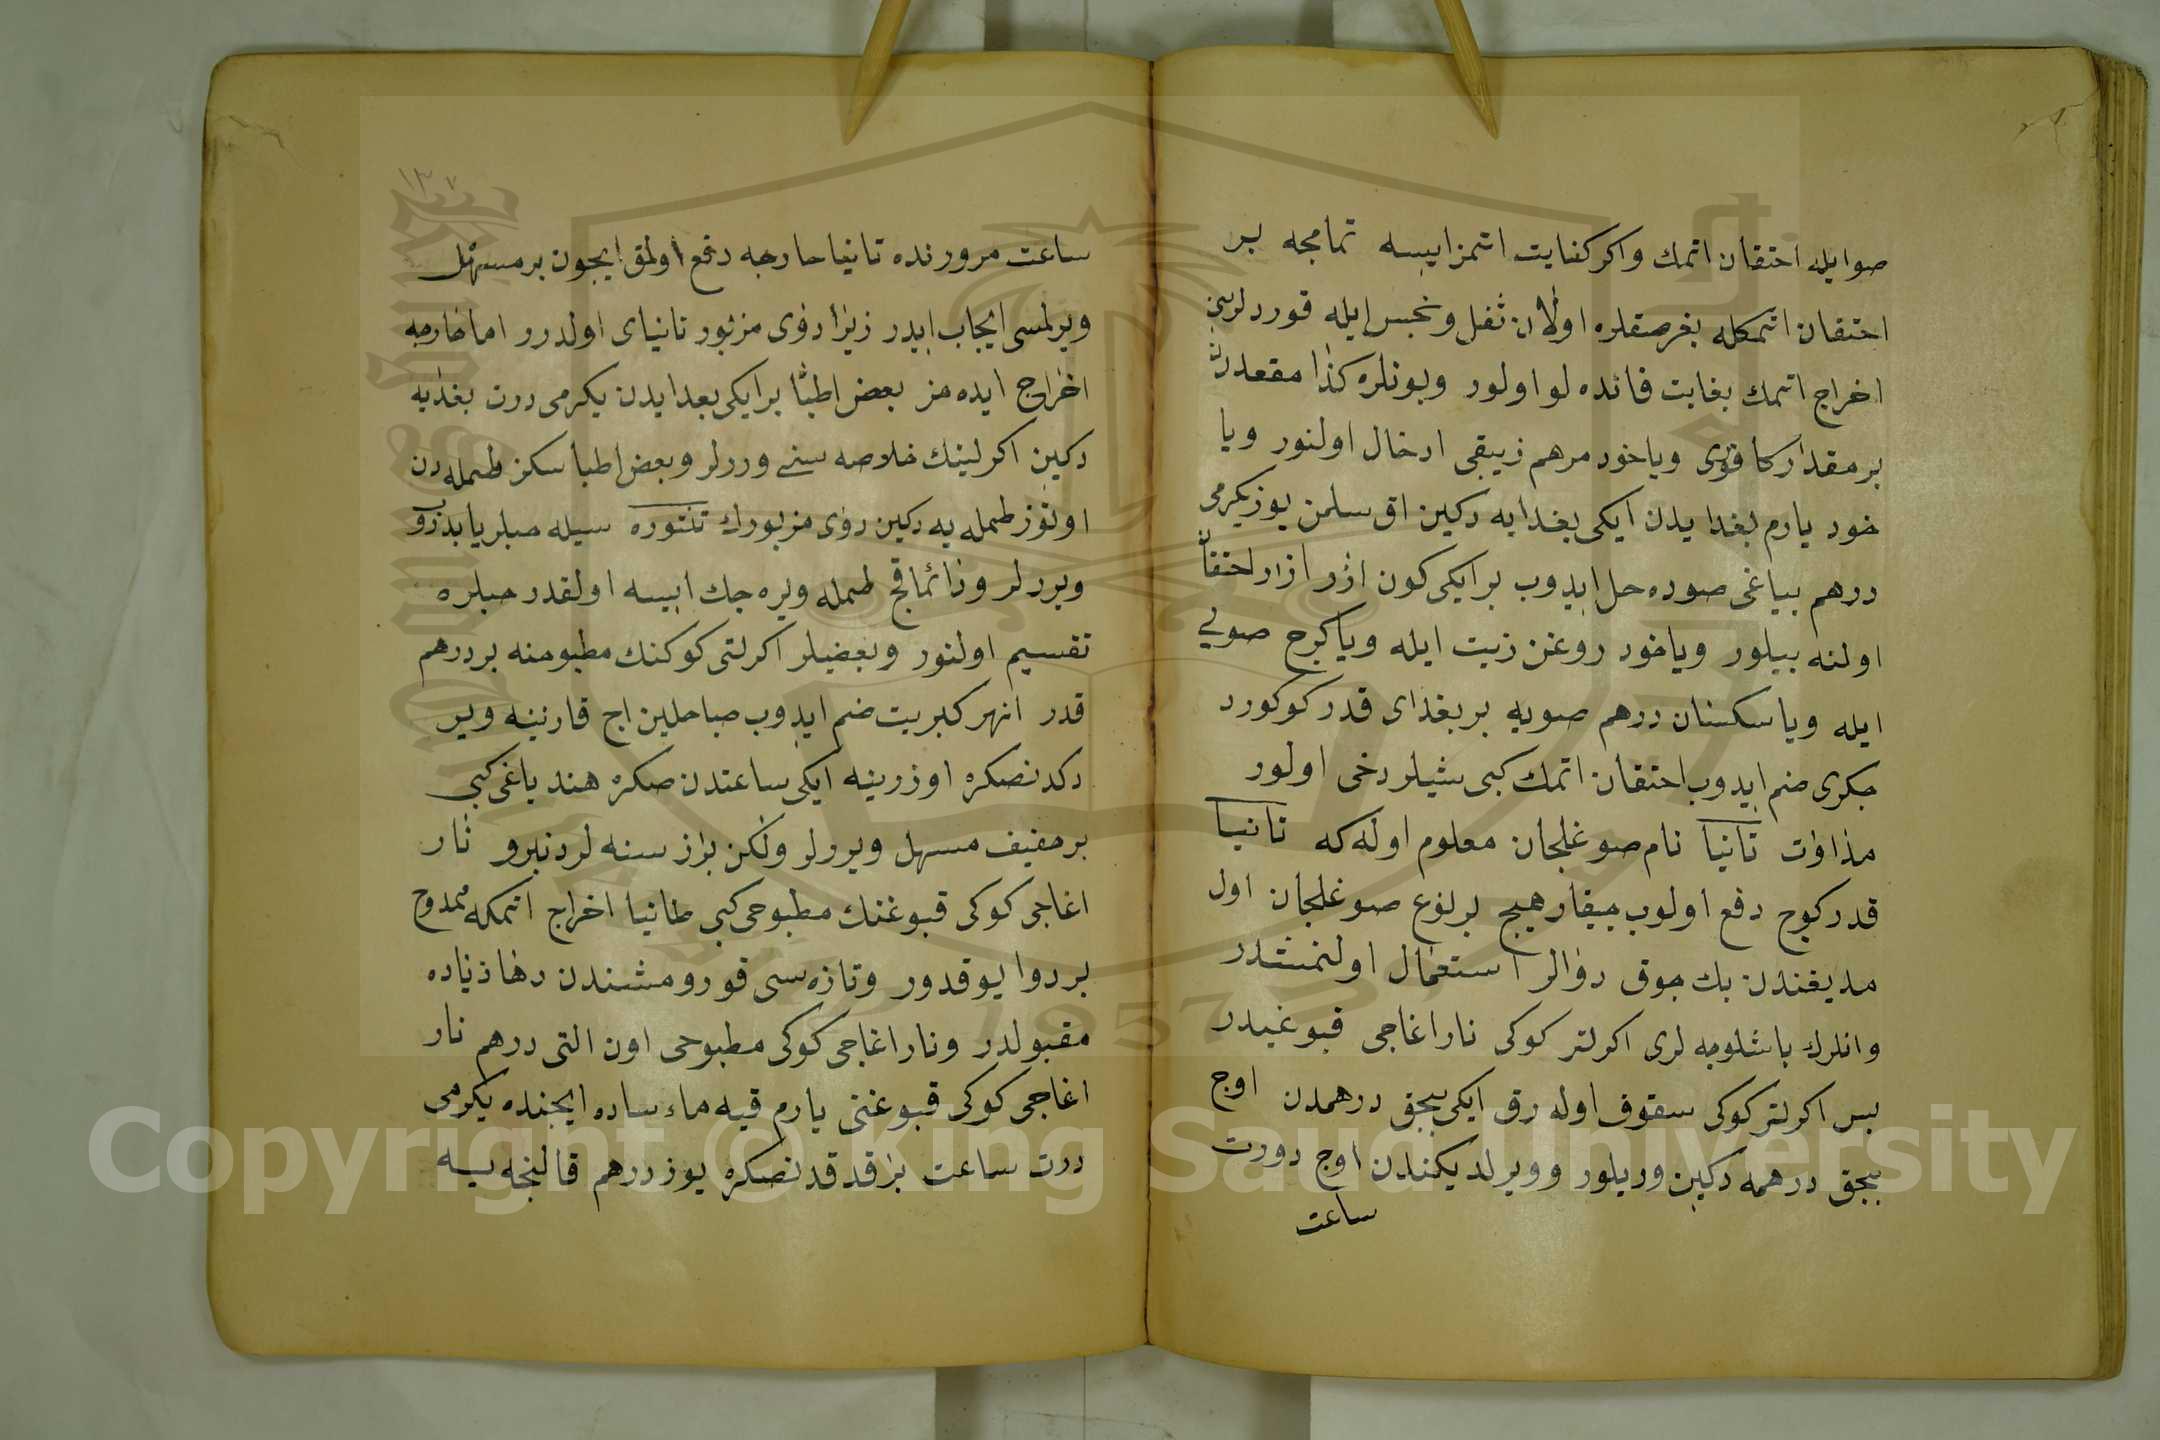 صو ايله احتقان اتمك واكر كفايت اتمز ايسه تمامجه بر
احتقان اتمكله بغرصقلره اولان ثفل ونجس ايله قوردلرين
اخراج اتمك بغايت فائده لو اولور وبونلره كذا مقعددن
بر مقدار كافوى وياخود مرهم زيبقى ادخال اولنور ويا
خود يارم بغدايدن ايكى بغدايه دكين اق سلمن يوز يكرمى
درهم بياغى صوده حل ايدوب بر ايكى كون ازر ازار احتقان
اولنه بيلور وياخود روغن زيت ايله وياكرج صويى
ايله وياسكسان درهم صويه بر بغداى قدر كوكورد
جكرى ضم ايدوب احتقان اتمك كبى شيلر دخى اولور
مذاوات تانيا نام صوغلجان معلوم اوله كه تانيا
قدر كوج دفع اولوب جيقار هيج بر نوع صوغلجان اول
مديغندن بك جوق دوالر استعمال اولنمشدر
وانلرك باشلوجه لرى اكرلتر كوكى نار اغاجى قبوغيدر
بس اكرلتر كوكى سقوف اوله رق ايكى بجق درهمدن اوج
بجق درهمه دكين وريلور وويرلديكندن اوج دورت
ساعت
١٣٧
ساعت مرورنده تانيا خارجه دفع اولمق ايجون بر مسهل
ويرلمسى ايجاب ايدر زيرا دواى مزبور تانياى اولدرر اما خارجه
اخراج ايده مز بعض اطبا بر ايكى بغدايدن يكرمى درت بغدايه
دكين اكرلينك خلاصه سنى وررلر وبعض اطبا سكز طمله دن
اوتوز طمله يه دكين دواى مزبورك تنتوره سيله حبلر يابدروب
ويررلر ودائما قج طمله ويره جك ايسه اولقدر حبلره
تقسيم اولنور وبعضيلر اكرلتى كوكنك مطبوخنه بر درهم
قدر انهر كبريت ضم ايدوب صباحلين اج قارنينه وير
دكدنصكره اوزرينه ايكى ساعتدن صكره هند ياغى كبى
بر خفيف مسهل ويررلر ولكن براز سنه لردنبرو نار
اغاجى كوكى قبوغنك مطبوخى كبى طانيا اخراج اتمكه ممدوح
بر دوا يوقدور وتازه سى قورومشندن دها زياده
مقبولدر ونار اغاجى كوكى مطبوخى اون التى درهم نار
اغاجى كوكى قبوغنى يارم قيه ماء ساده ايجنده يكرمى
درت ساعت براقدقدنصكره يوز درهم قالنجه يه